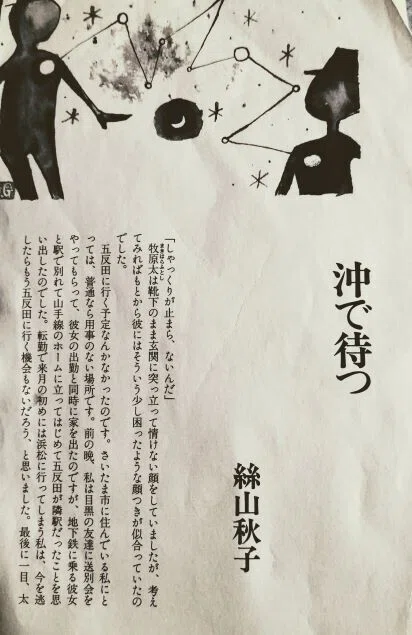 沖で待つ
絲山秋子
「しゃっくりが止まら、ないんだ」
牧原太は靴下のまま玄関に突っ立って情けない顔をしていましたが、考え
てみればもとから彼にはそういう少し困ったような顔つきが似合っていたの
でした。
五反田に行く予定なんかなかったのです。さいたま市に住んでいる私にと
っては、普通なら用事のない場所です。前の晩、私は目黒の友達に送別会を
やってもらって、彼女の出勤と同時に家を出たのですが、地下鉄に乗る彼女
と駅で別れて山手線のホームに立ってはじめて五反田が隣駅だったことを思
い出したのでした。転勤で来月の初めには浜松に行ってしまう私は、今を逃
したらもう五反田に行く機会もないだろう、と思いました。最後に一目、太